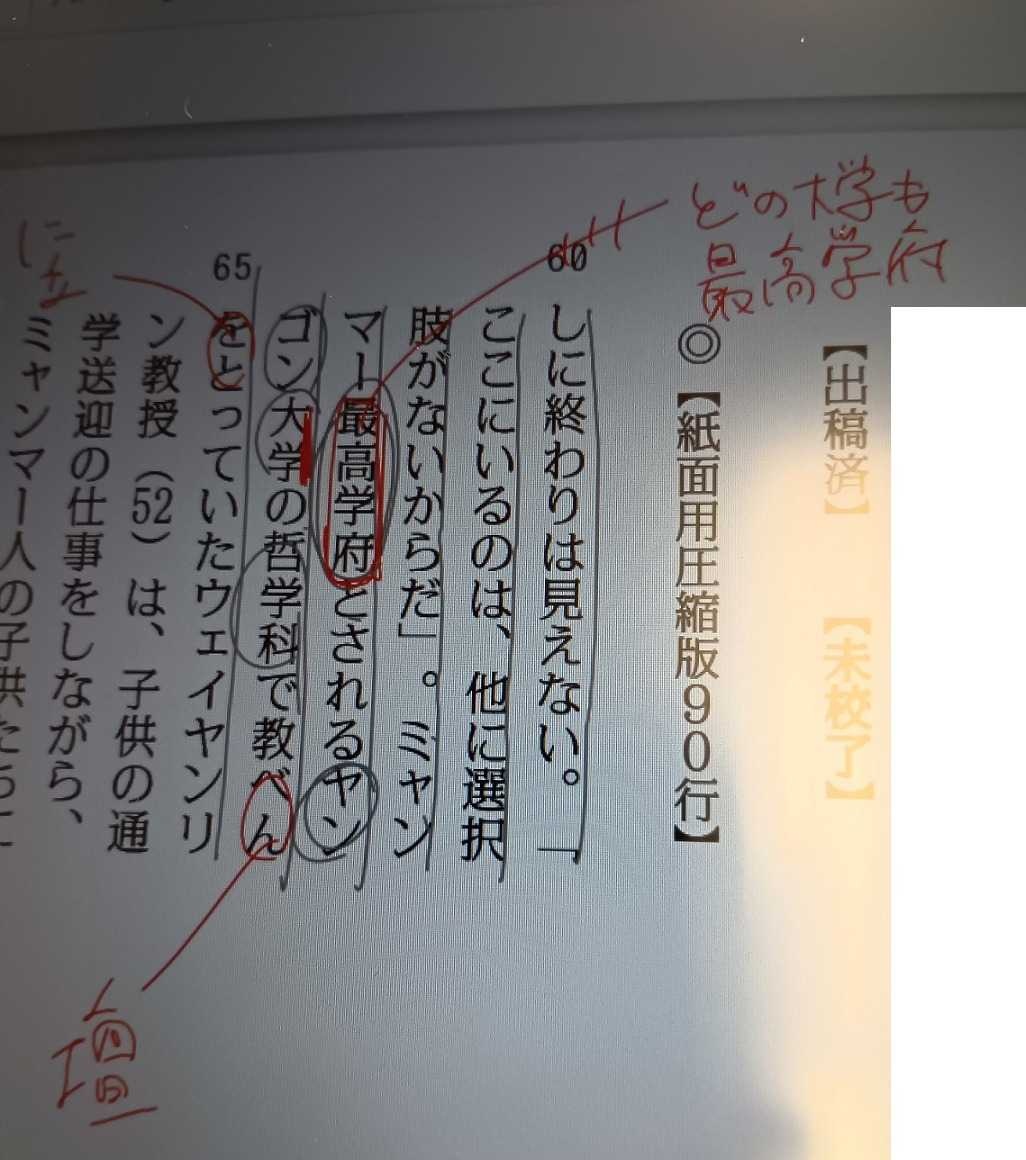 【出稿済】 【未校了】
◎【紙面用圧縮版90行】
どの大学も
最高学府
60
しに終わりは見えない。「
ここにいるのは、他に選択
肢がないからだ」。ミャン
マー最高学府とされるヤン
ゴン大学の哲学科で教べん
65
をとっていたウェイヤンリ
ン教授(52)は、子供の通
学送迎の仕事をしながら、
ミャンマー人の子供たちに
に
壇